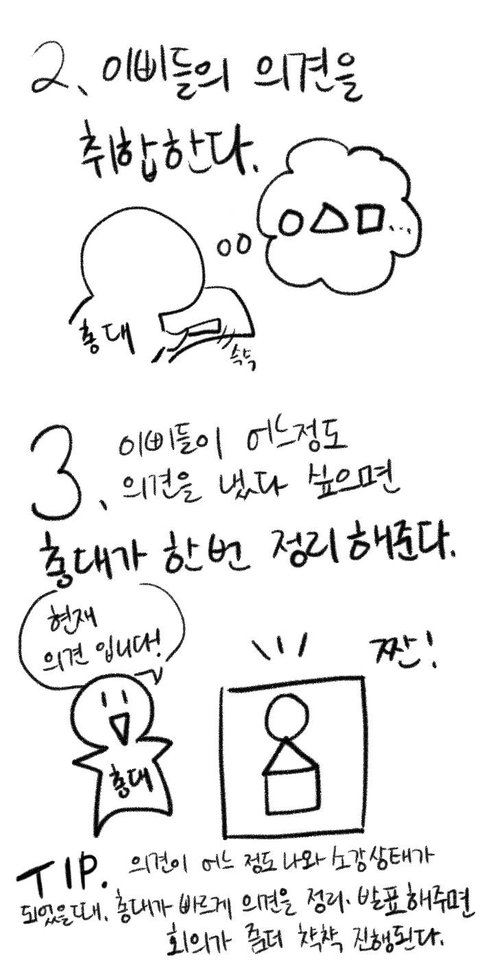 2. 이비들의 의견을
취합한다.
총대
슥슥
3. 이비들이 어느정도
의견을 냈다 싶으면
총대가 한번 정리해준다.
현재
의견 입니다!
짠!
총대
TIP. 의견이 어느 정도 나와 소강상태가
되었을때, 총대가 빠르게 의견을 정리·발표해주면
회의가 좀더 착착 진행된다.